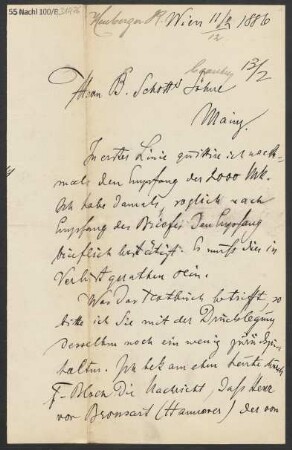 55 Nachl 100/B,
Heuberger R. Wien 11/2 1886
12
13/2
Herrn B. Schott's Söhne
Mainz.
In erster Linie quittire ich noch-
mals den Empfang der 2000 Mk.
Ich habe damals, sogleich nach
Empfang des Briefes den Empfang
brieflich bestätigt. Es muß dies in
Verlust gerathen sein.
Was das Textbuch betrifft, so
bitte ich Sie mit der Drucklegung
desselben noch ein wenig zurückzu-
halten. Ich bekam eben heute durch
F. Bloch die Nachricht, daß Herr
von Bronsart (Hannover) des von